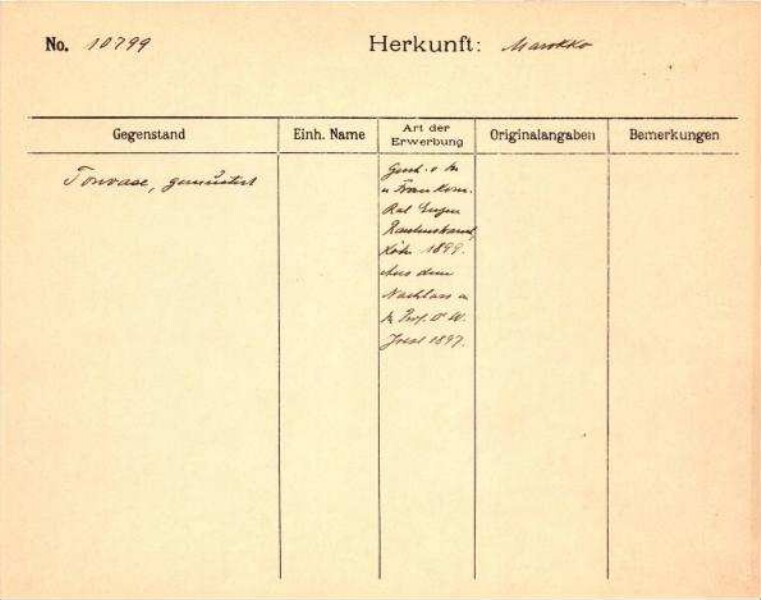 No. 10799
Herkunft: Marokko
Gegenstand
Einh. Name
Art der Erwerbung
Originalangaben
Bemerkungen
Tonvase, gemustert
Gesch. v. H.
u Frau Kom.
Rat Eugen
Rautenstrauch,
Köln 1899.
Aus dem
Nachlass
Prof. Dr W.
Joest 1897.